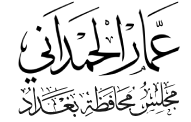 عمار الحمداني
مجلس محافظة بغداد